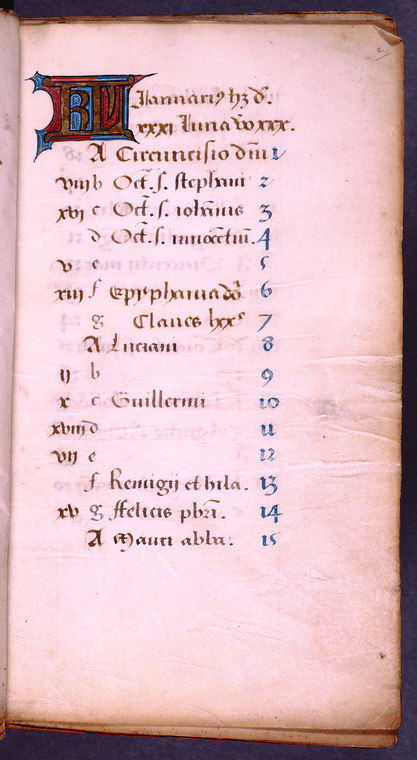 KL Januariꝰ hꝫ d.
xxxi luna v̊o xxx.
A Circuncisio dm̄i 1
viii b Oct̄. s. stephani 2
xvi c Oct̄. s. iohānis 3
d Oct̄. s. innocētiū. 4
v e 5
xiii f Epyphania dō. 6
g Claues lxxˢ 7
A Luciani 8
ii b 9
x c Guillermi 10
xviii d 11
vii e 12
f Remigij et hila. 13
xv g ffelicis pbr̄i. 14
A Mauri abba. 15